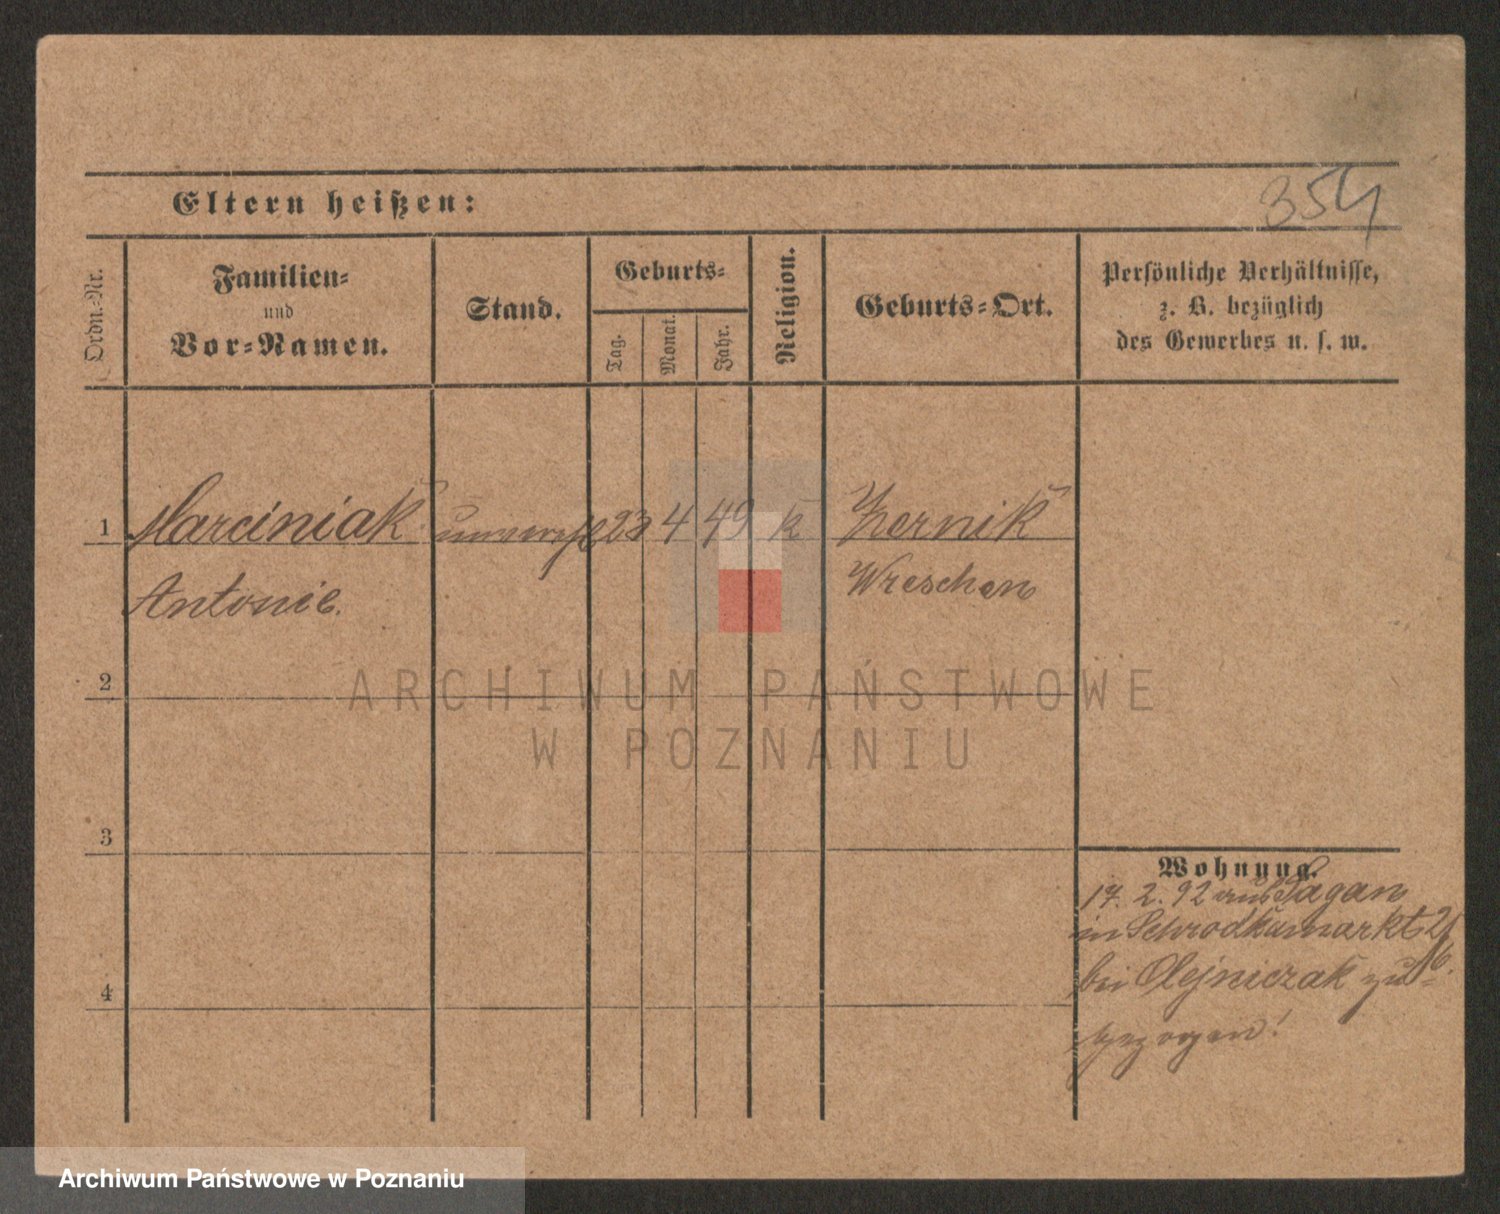 354
Eltern heißen:
Ordn.-Nr.
Familien-
und
Vor-Namen.
Stand.
Geburts-
Tag.
Monat.
Jahr.
Religion.
Geburts-Ort.
Persönliche Verhältnisse,
z. B. bezüglich
des Gewerbes u. s. w.
1 Marciniak unverehl 23 4 49 k Zernik
Antonie. Wreschen
2
3
4
Wohnung.
17. 2. 92 aus Sagan
in Schrodkamarkt 2/
6.
bei Olejniczak zu-
gezogen!
ARCHIWUM PAŃSTWOWE
W POZNANIU
Archiwum Państwowe w Poznaniu